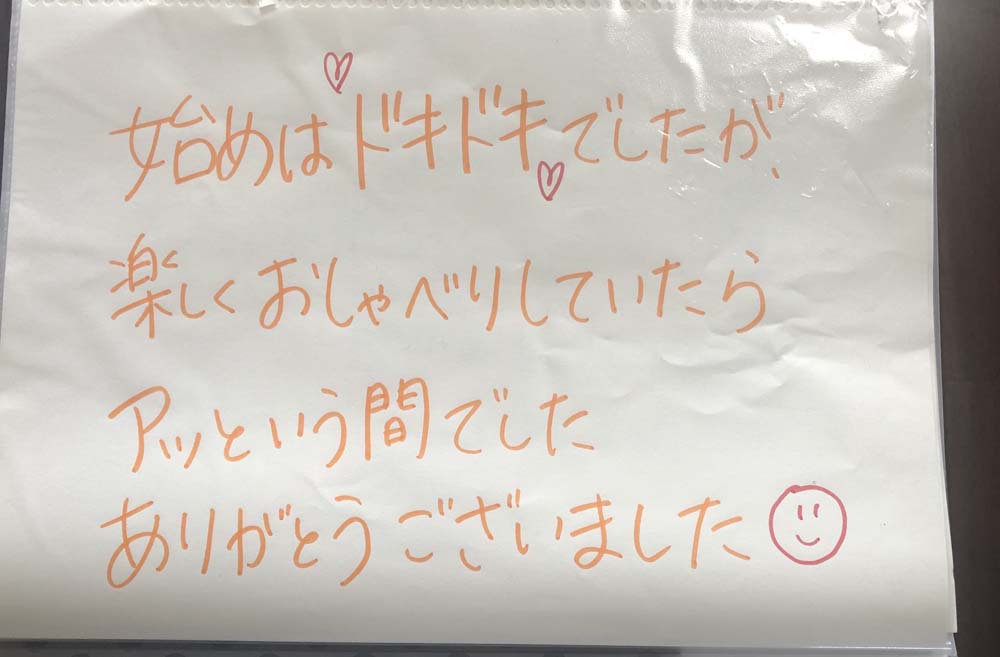 始めはドキドキでしたが、
楽しくおしゃべりしていたら
アッという間でした
ありがとうございました